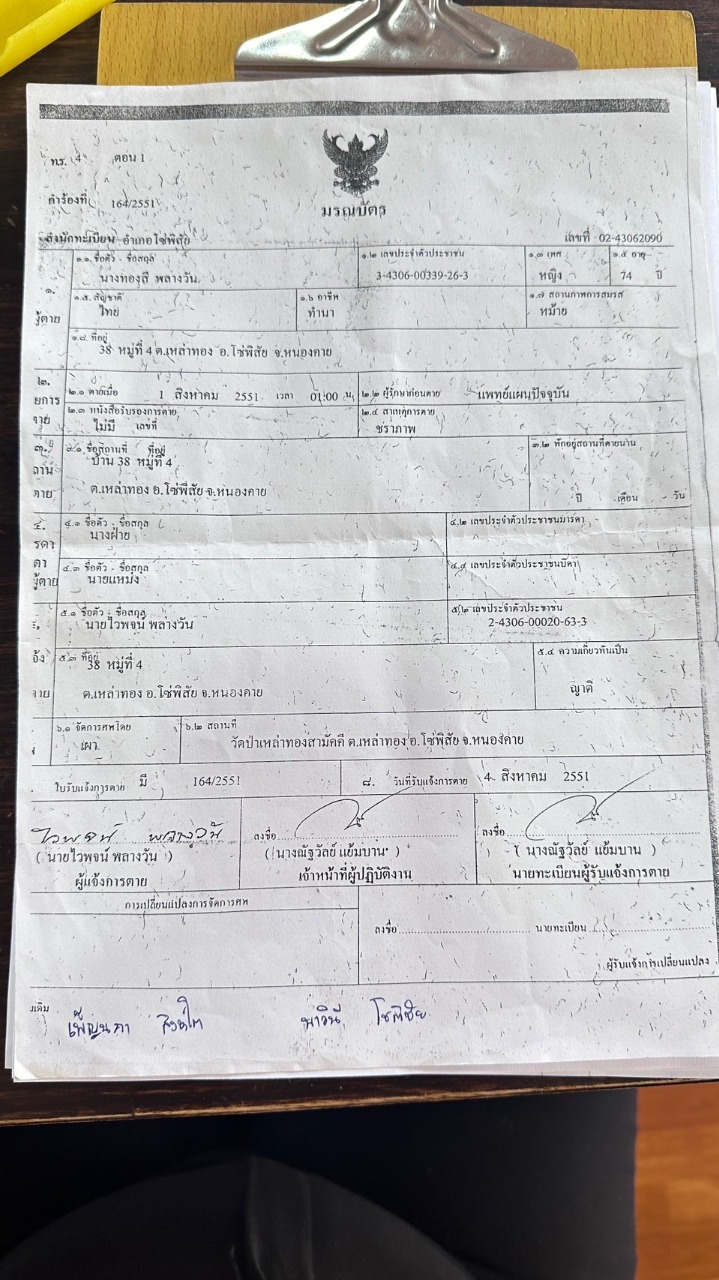 ท.ร. 4 ตอน 1
คำร้องที่ 164/2551
มรณบัตร
สำนักทะเบียน อำเภอโซ่พิสัย เลขที่ 02-43062090
๑. ผู้ตาย
๑.๑ ชื่อตัว - ชื่อสกุล ๑.๒ เลขประจำตัวประชาชน ๑.๓ เพศ ๑.๔ อายุ
นางทองสี พลางวัน 3-4306-00339-26-3 หญิง 74 ปี
๑.๕ สัญชาติ ๑.๖ อาชีพ ๑.๗ สถานภาพการสมรส
ไทย ทำนา หม้าย
๑.๘ ที่อยู่
38 หมู่ที่ 4 ต.เหล่าทอง อ.โซ่พิสัย จ.หนองคาย
๒.
ยการ
าย
๒.๑ ตายเมื่อ 1 สิงหาคม 2551 เวลา 01:00 น. ๒.๒ ผู้รักษาก่อนตาย แพทย์แผนปัจจุบัน
๒.๓ หนังสือรับรองการตาย ๒.๔ สาเหตุการตาย
ไม่มี เลขที่ ชราภาพ
๓.
ถาน
ตาย
๓.๑ ชื่อสถานที่ ที่อยู่ ๓.๒ พักอยู่สถานที่ตายนาน
บ้าน 38 หมู่ที่ 4
ต.เหล่าทอง อ.โซ่พิสัย จ.หนองคาย ปี เดือน วัน
๔.
รดา
ดา
ผู้ตาย
๔.๑ ชื่อตัว - ชื่อสกุล ๔.๒ เลขประจำตัวประชาชนมารดา
นางฝ่าย
๔.๓ ชื่อตัว - ชื่อสกุล ๔.๔ เลขประจำตัวประชาชนบิดา
นายแหม่ง
๕.๑ ชื่อตัว - ชื่อสกุล ๕.๒ เลขประจำตัวประชาชน
นายไวพจน์ พลางวัน 2-4306-00020-63-3
จ้ง
าย
๕.๓ ที่อยู่ ๕.๔ ความเกี่ยวพันเป็น
38 หมู่ที่ 4
ต.เหล่าทอง อ.โซ่พิสัย จ.หนองคาย ญาติ
๖.๑ จัดการศพโดย ๖.๒ สถานที่
เผา วัดป่าเหล่าทองสามัคคี ต.เหล่าทอง อ.โซ่พิสัย จ.หนองคาย
ใบรับแจ้งการตาย มี 164/2551 ๘. วันที่รับแจ้งการตาย 4 สิงหาคม 2551
ไวพจน์ พลางวัน ลงชื่อ ลงชื่อ
( นายไวพจน์ พลางวัน ) ( นางณัฐวัลย์ แย้มบาน ) ( นางณัฐวัลย์ แย้มบาน )
ผู้แจ้งการตาย เจ้าหน้าที่ผู้ปฏิบัติงาน นายทะเบียนผู้รับแจ้งการตาย
การเปลี่ยนแปลงการจัดการศพ
ลงชื่อ นายทะเบียน
ผู้รับแจ้งการเปลี่ยนแปลง
เดิม
เพ็ญนภา ภาวินี โชติชัย